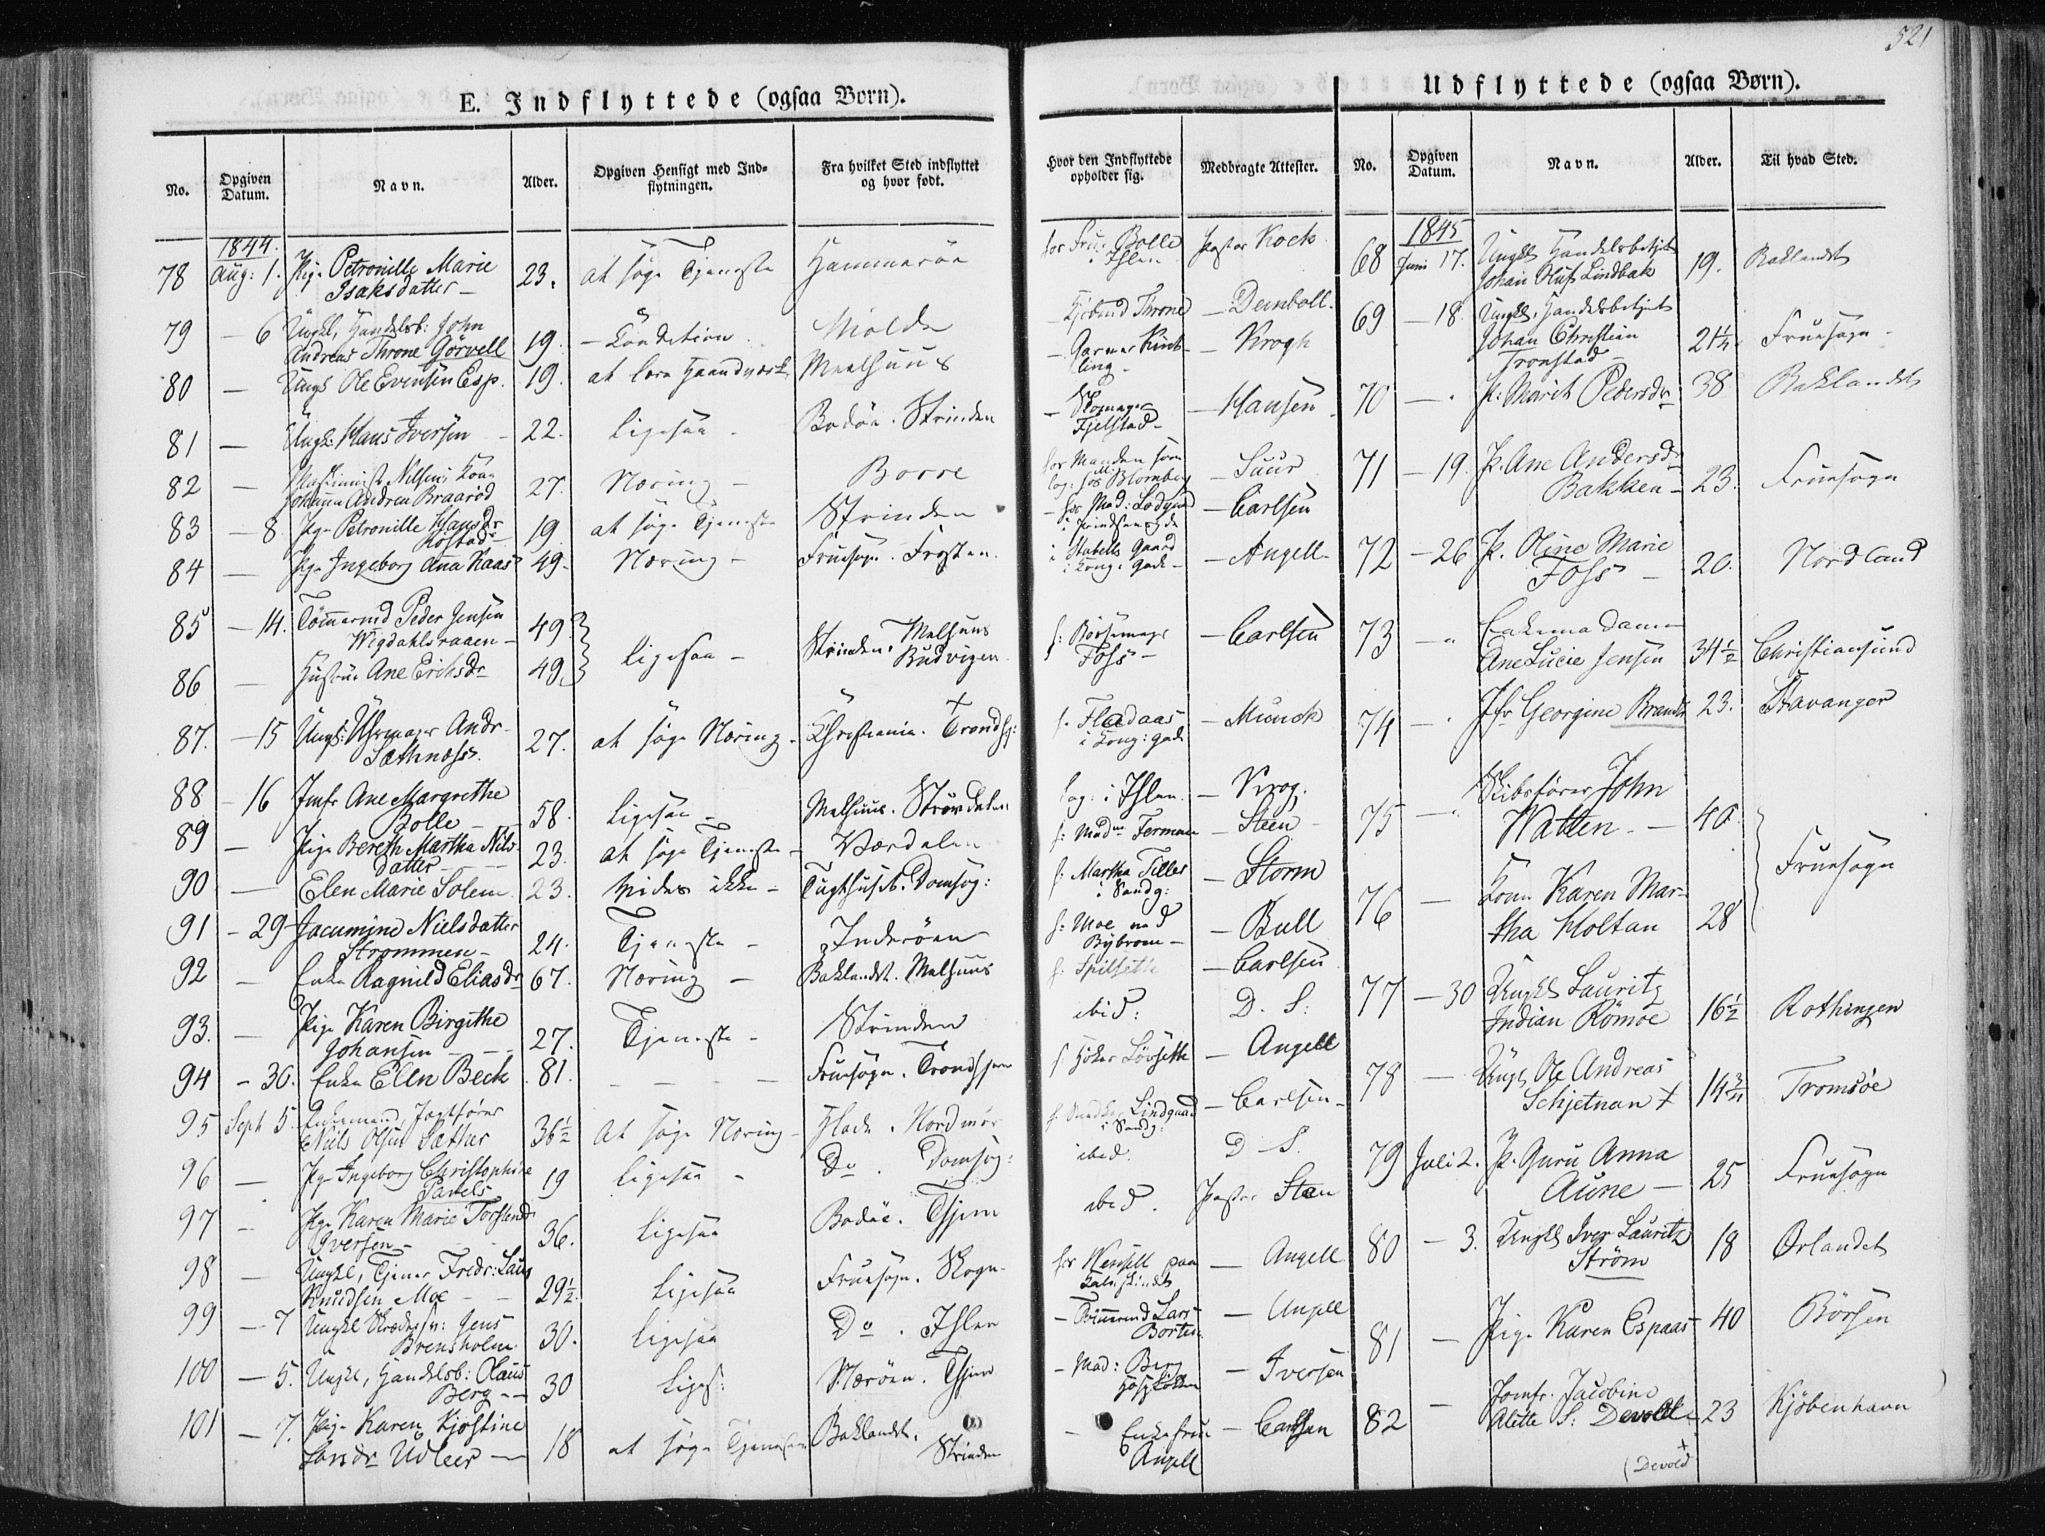 521
E. Indflyttede (ogsaa Børn).
No. Opgiven Datum. Navn. Alder. Opgiven Hensigt med Indflytningen. Fra hvilket Sted indflyttet og hvor født. Hvor den Indflyttede opholder sig. Medbragte Attester.
1844.
78 Aug: 1. Pige Petronille Marie Isaksdatter 23. at søge Tjeneste Hammerøe hos Fru Bolle i Ihlen Pastor Kock
79 – 6 Ungkl. Handelsb: John Andreas Throne Görvell 19. – Condition Molde Kjøbmd Throne – Deinboll.
80 – Ungk Ole Evensen Esp. 19. at lære Haandværk Meelhuus – Garver – Krogh
81 – Ungk: Hans Iversen 22. ligesaa – Bodöe. Strinden – Skomager Fjelstad – – Hansen
82 – Nilsens Kone Johanna Andrea Braarød 27. Næring – Borre hos Manden – Suur
83 – 8 Pige Petronille Hansdr 19. at søge Tjeneste Strinden – hos Mad: – Carlsen
84 – Pige Ingeborg Ana Kaas 49. Næring – Fruesogn. Frosten. i Stabells Gaard i Kong: Gade – – Angell
85 – 14. Tömmermd Peder Jensen Wigdahlsraaen – 49 ligesaa – Strinden. Melhuus f: Børsemager Foss – – Carlsen
86 – Hustrue Ane Eriksdr 49. Budvigen
87. – 15 Ungk: Uhrmager Andr. Sæthnæss. 27. at søge Næring – Christiania. Trondhj: f. Fladaas i Kong: gade – Munck
88 – 16 Jmfr Ane Margrethe Bolle 58. ligesaa – Melhuus. Størdalen log: i Ihlen. – Krog
89 – Pige Bereth Martha Nilsdatter 23. at søge Tjeneste – Værdalen f: Madm – Steen
90 – Elen Marie Solem 23. vides ikke – Tugthuset. Domsog: f: Martha Tiller i Sandg: – Storm
91 – 29 Jacumine Nielsdatter Strømmen – 24. Tjeneste – Inderøen f: Moe ved Bybroen – – Bull
92 – Enke Ragnild Eliasdr 67. Næring – Baklandet. Melhuus f: – Carlsen
93. – Pige Karen Birgithe Johansen 27. Tjeneste – Strinden ibid: D. S:
94 – 30. Enke Elen Beck 81. – – – Fruesogn. Trondhjem f Høker Løvseth – Angell
95 Sept 5. Jagtfører Niels Olsen Sæther 36½ at søge Næring – Hlade. Nordmør f: Lindgaard i Sandg: – Carlsen –
96 – Pige Ingeborg Christophine Pavels 19 ligesaa – Do. Domsog: ibid: D. S.
97 – Pige Karen Marie Torstendr Iversen – 36. ligesaa Bodöe. Thjem ibid. Pastor Steen
98 – Ungkl, Tjener Fredr: Laus Knudsen Moe – – 29½. ligesaa Fruesogn. Skogn hos Wensell paa Kalvskindet – Angell
99 – 7 Ungkl Skrædersv: Jens Brensholm 30. ligesaa Do. Ihlen – Tömmermd Lars Borten – Angell
100 – 5. Ungkl, Handelsb: Claus Berg – – 30 liges: Nærøen. Thjem – Mad: Berg – Iversen
101 – 7. Pige Karen Kjøstine Larsdr Udleer – 18 at søge Tjeneste Baklandet. Strinden – Enkefrue Angell – Carlsen
Udflyttede (ogsaa Børn).
No. Opgiven Datum. Navn. Alder. Til hvad Sted.
1845
68 Juni 17. Ungkl Handelsbetjent Johan Oluf Lindbak 19. Baklandet
69 – 18. Ungkl. Handelsbetjent Johan Christian Tronstad 21¼ Fruesogn –
70 – " P. Marit Pedersdr 38 Baklandet
71 – 19. P. Ane Andersdr Bakken – 23. Fruesogn
72 – 26 P. Oline Marie Foss – 20. Nordland
73 – " Enkemadame Ane Lucie Jensen 34½ Christiansund
74 – " Jfr Georgine Brandt 23. Stavanger
75 – " Skibsfører John Watten – – 40. Fruesogn
76 – Kone Karen Martha Holtan 28
77 – 30 Ungkl Lauritz Indian Römoe 16½ Kothengen
78 – Ungk Ole Andreas Schjetnan + 14¾ Tromsøe
79 Juli 2. P. Guru Anna Aune – 25 Fruesogn
80 – 3. Ungkl Iver Lauritz Ström 18 Ørlandet
81 – Pige Karen Espaas – 40 Börsen
82 – Jomfr. Jacobine Alette S: Devold 23 Kjöbenhavn
+ (Devold